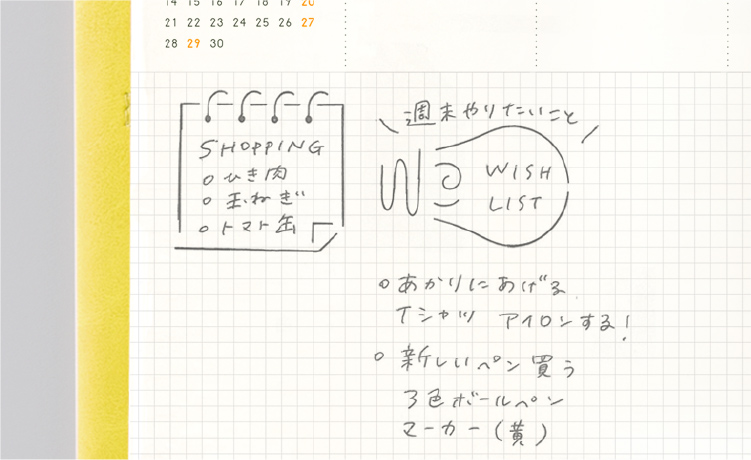 14 15 16 17 18 19 20
21 22 23 24 25 26 27
28 29 30
SHOPPING
○ ひき肉
○ 玉ねぎ
○ トマト缶
週末やりたいこと
WISH
LIST
○ あかりにあげる
Tシャツ アイロンする!
○ 新しいペン買う
3色ボールペン
マーカー(黄)